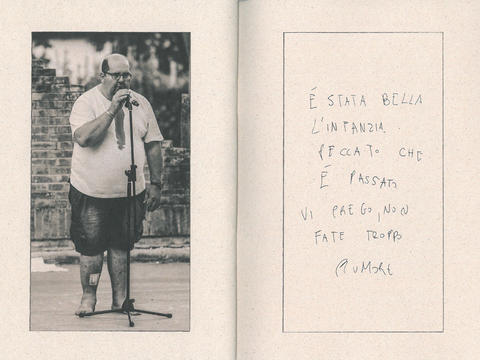 É STATA BELLA
L'INFANZIA.
PECCATO CHE
É PASSATO
VI PREGO, NON
FATE TROPPO
RUMORE